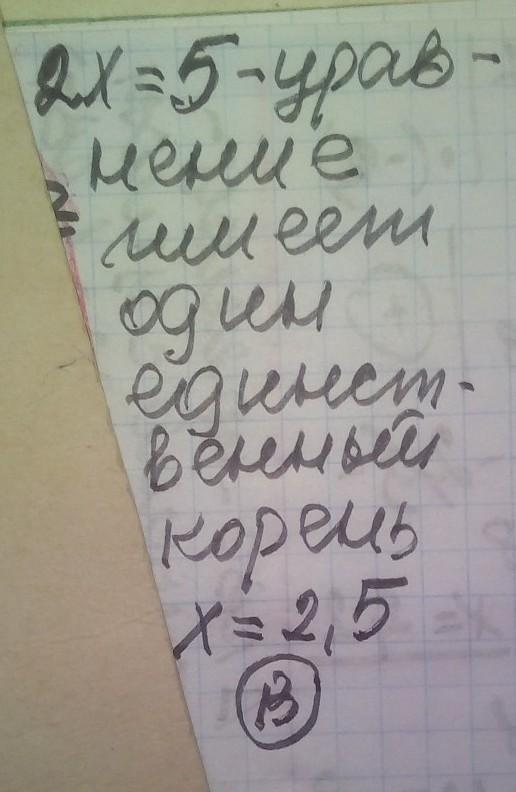 2x = 5 - урав -
нение
имеет
один
единст -
венный
корень
x = 2,5
В